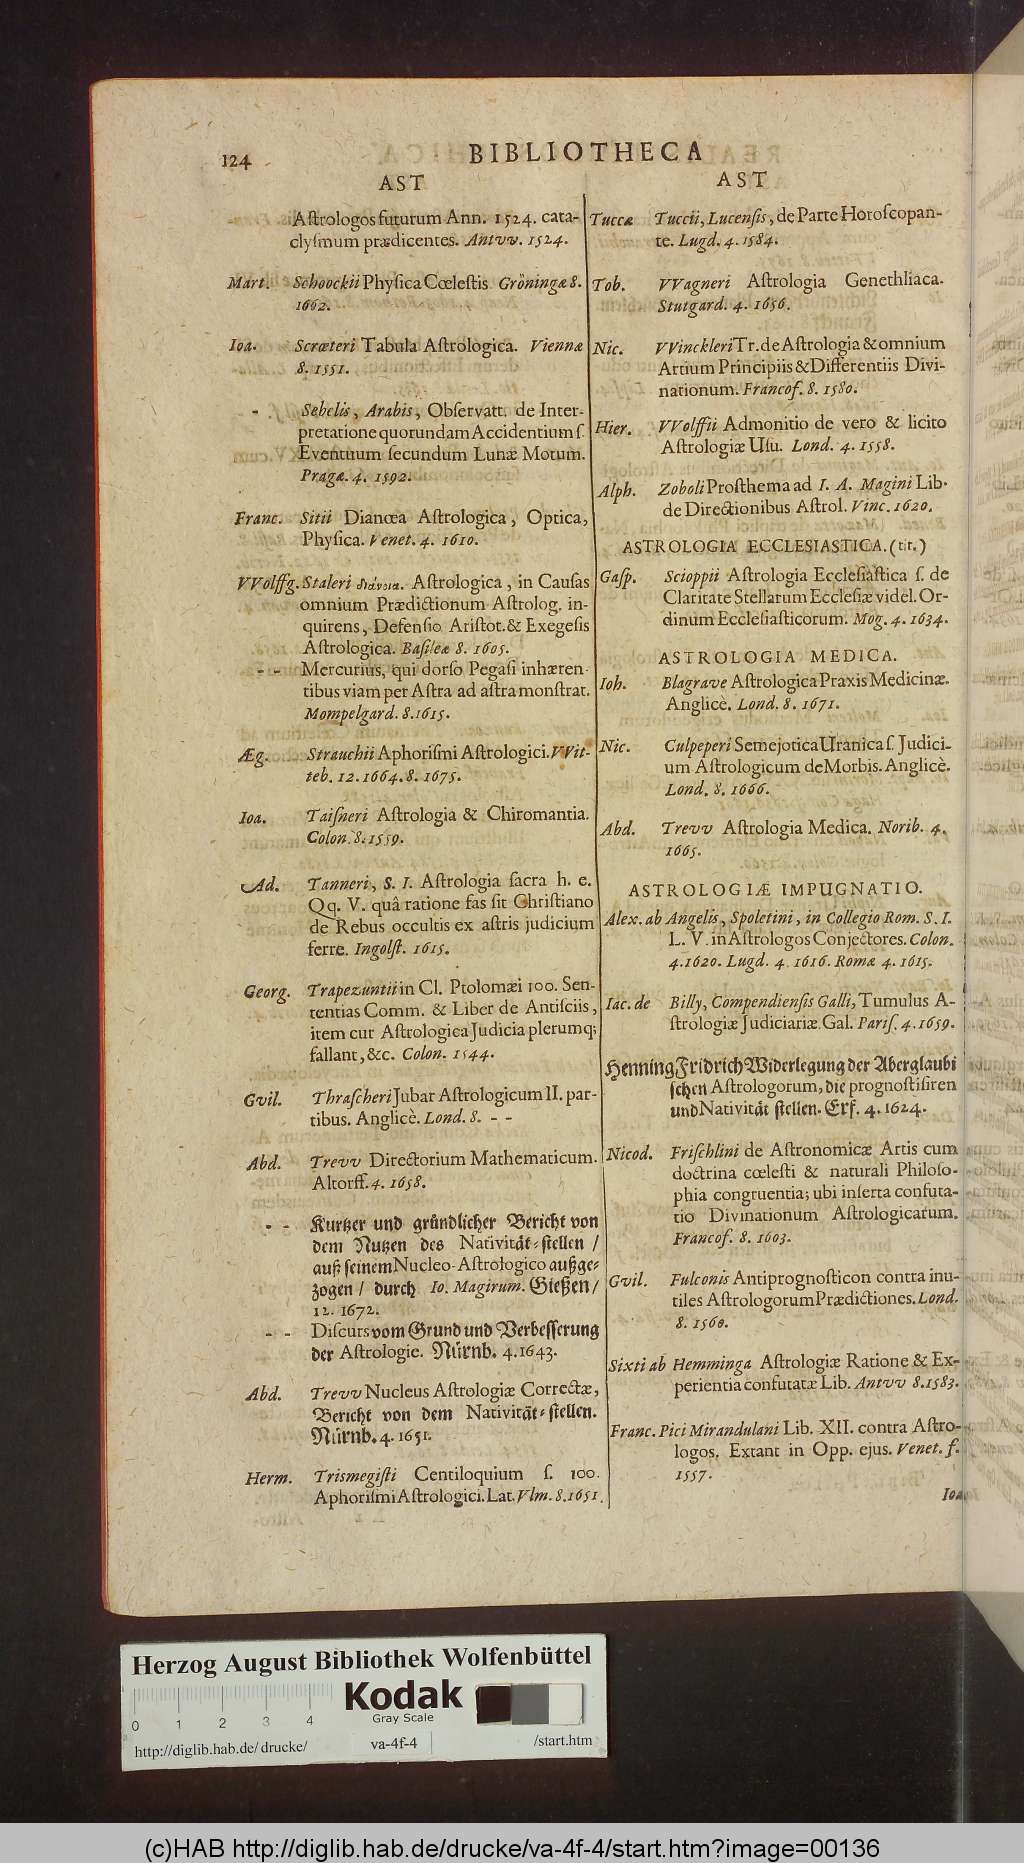 124
BIBLIOTHECA
AST
Aſtrologos futurum Ann. 1524. cata-
clyſmum prædicentes. Antvv. 1524.
Mart. Schoockii Phyſica Cœleſtis Gröningæ 8.
1662.
Ioa. Scræteri Tabula Aſtrologica. Viennæ
8. 1551.
- Sehelis, Arabis, Obſervatt. de Inter-
pretatione quorundam Accidentium ſ.
Eventuum ſecundum Lunæ Motum.
Pragæ. 4. 1592.
Franc. Sitii Dianœa Aſtrologica, Optica,
Phyſica. Venet. 4. 1610.
VVolffg. Staleri διάνοια. Aſtrologica, in Cauſas
omnium Prædictionum Aſtrolog. in-
quirens, Defenſio Ariſtot. & Exegeſis
Aſtrologica. Baſileæ 8. 1605.
- - Mercurius, qui dorſo Pegaſi inhæren-
tibus viam per Aſtra ad aſtra monſtrat.
Mompelgard. 8. 1615.
Æg. Strauchii Aphoriſmi Aſtrologici. VVit-
teb. 12. 1664. 8. 1675.
Ioa. Taiſneri Aſtrologia & Chiromantia.
Colon. 8. 1559.
Ad. Tanneri, S. I. Aſtrologia ſacra h. e.
Qq. V. quâ ratione fas ſit Chriſtiano
de Rebus occultis ex aſtris judicium
ferre. Ingolſt. 1615.
Georg. Trapezuntii in Cl. Ptolomæi 100. Sen-
tentias Comm. & Liber de Antiſciis,
item cur Aſtrologica Judicia plerumq;
fallant, &c. Colon. 1544.
Gvil. Thraſcheri Jubar Aſtrologicum II. par-
tibus. Anglicè. Lond. 8. - -
Abd. Trevv Directorium Mathematicum.
Altorff. 4. 1658.
- - Kurtzer und gründlicher Bericht von
dem Nutzen des Nativität-ſtellen /
auß ſeinem Nucleo Aſtrologico außge-
zogen / durch Io. Magirum. Gieſſen /
12. 1672.
- - Diſcurs vom Grund und Verbeſſerung
der Aſtrologie. Nürnb. 4. 1643.
Abd. Trevv Nucleus Aſtrologiæ Correctæ,
Bericht von dem Nativität-ſtellen.
Nürnb. 4. 1651.
Herm. Trismegiſti Centiloquium ſ. 100.
Aphoriſmi Aſtrologici. Lat. Vlm. 8. 1651.
AST
Tuccæ Tuccii, Lucenſis, de Parte Horoſcopan-
te. Lugd. 4. 1584.
Tob. VVagneri Aſtrologia Genethliaca.
Stutgard. 4. 1656.
Nic. VVinckleri Tr. de Aſtrologia & omnium
Artium Principiis & Differentiis Divi-
nationum. Francof. 8. 1580.
Hier. VVolffii Admonitio de vero & licito
Aſtrologiæ Uſu. Lond. 4. 1558.
Alph. Zoboli Proſthema ad I. A. Magini Lib.
de Directionibus Aſtrol. Vinc. 1620.
ASTROLOGIA ECCLESIASTICA. (tit.)
Gaſp. Scioppii Aſtrologia Eccleſiaſtica ſ. de
Claritate Stellarum Eccleſiæ videl. Or-
dinum Eccleſiaſticorum. Mog. 4. 1634.
ASTROLOGIA MEDICA.
Ioh. Blagrave Aſtrologica Praxis Medicinæ.
Anglicè. Lond. 8. 1671.
Nic. Culpeperi Semejotica Uranica ſ. Judici-
um Aſtrologicum de Morbis. Anglicè.
Lond. 8. 1666.
Abd. Trevv Aſtrologia Medica. Norib. 4.
1665.
ASTROLOGIÆ IMPUGNATIO.
Alex. ab Angelis, Spoletini, in Collegio Rom. S. I.
L. V. in Aſtrologos Conjectores. Colon.
4. 1620. Lugd. 4. 1616. Romæ 4. 1615.
Iac. de Billy, Compendienſis Galli, Tumulus A-
ſtrologiæ Judiciariæ. Gal. Pariſ. 4. 1659.
Henning Fridrich Widerlegung der Aberglaubi
ſchen Aſtrologorum, die prognoſtiſiren
und Nativität ſtellen. Erf. 4. 1624.
Nicod. Friſchlini de Aſtronomicæ Artis cum
doctrina cœleſti & naturali Philoſo-
phia congruentia; ubi inſerta confuta-
tio Divinationum Aſtrologicarum.
Francof. 8. 1603.
Gvil. Fulconis Antiprognoſticon contra inu-
tiles Aſtrologorum Prædictiones. Lond.
8. 1560.
Sixti ab Hemminga Aſtrologiæ Ratione & Ex-
perientia confutatæ Lib. Antvv 8. 1583.
Franc. Pici Mirandulani Lib. XII. contra Aſtro-
logos. Extant in Opp. ejus. Venet. f.
1557.
Ioa
Herzog August Bibliothek Wolfenbüttel
Kodak
Gray Scale
0 1 2 3 4
http://diglib.hab.de/drucke/
va-4f-4
/start.htm
(c)HAB http://diglib.hab.de/drucke/va-4f-4/start.htm?image=00136